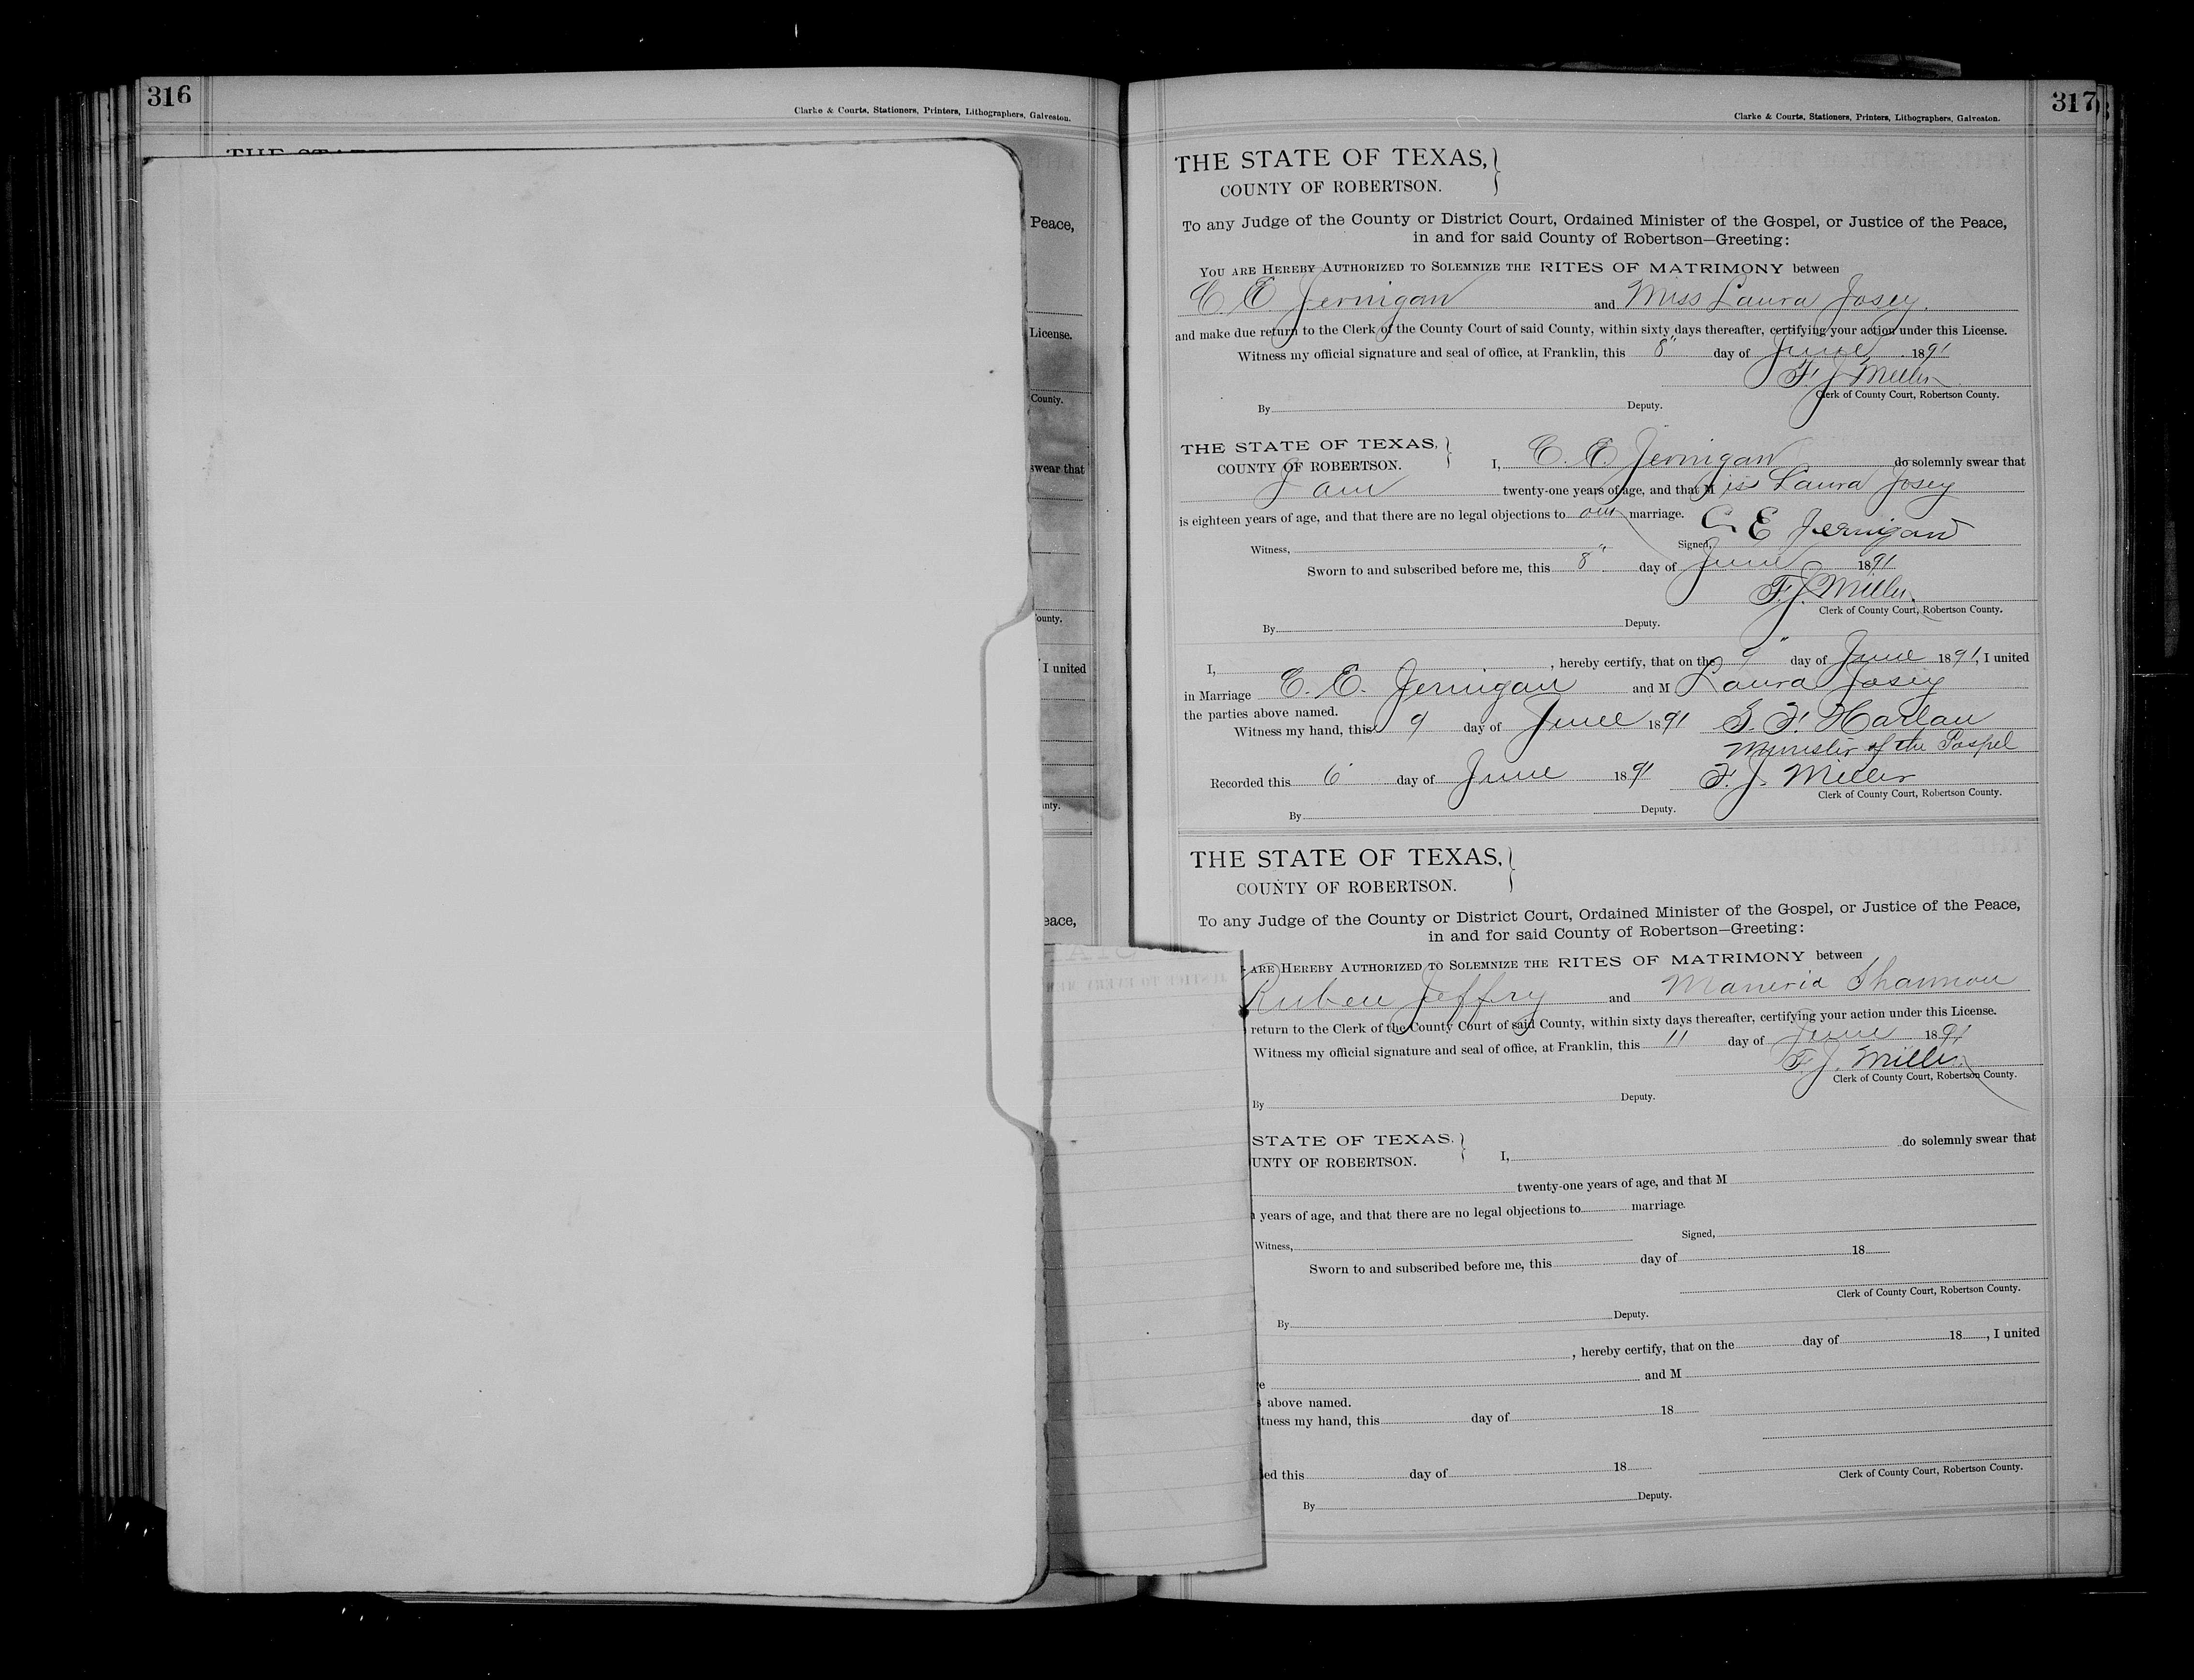 316
Clarke & Courts, Stationers, Printers, Lithographers, Galveston.
Peace,
License.
County.
swear that
ounty.
I united
nty.
eace,
317
Clarke & Courts, Stationers, Printers, Lithographers, Galveston.
THE STATE OF TEXAS,
COUNTY OF ROBERTSON.
To any Judge of the County or District Court, Ordained Minister of the Gospel, or Justice of the Peace,
in and for said County of Robertson—Greeting:
YOU ARE HEREBY AUTHORIZED TO SOLEMNIZE THE RITES OF MATRIMONY between
C. E. Jernigan and Miss Laura Josey.
and make due return to the Clerk of the County Court of said County, within sixty days thereafter, certifying your action under this License.
Witness my official signature and seal of office, at Franklin, this 8" day of June 1891
F. J. Miller
Clerk of County Court, Robertson County.
By Deputy.
THE STATE OF TEXAS,
COUNTY OF ROBERTSON. I, C. E. Jernigan do solemnly swear that
I am twenty-one years of age, and that Miss Laura Josey
is eighteen years of age, and that there are no legal objections to our marriage.
Witness, Signed, C E Jernigan
Sworn to and subscribed before me, this 8" day of June 1891
F. J. Miller
Clerk of County Court, Robertson County.
By Deputy.
I, , hereby certify, that on the 9" day of June 1891, I united
in Marriage C. E. Jernigan and M Laura Josey
the parties above named.
Witness my hand, this 9 day of June 1891 F. Harlan
Minister of the Gospel
Recorded this 6 day of June 1891 F. J. Miller
Clerk of County Court, Robertson County.
By Deputy.
THE STATE OF TEXAS,
COUNTY OF ROBERTSON.
To any Judge of the County or District Court, Ordained Minister of the Gospel, or Justice of the Peace,
in and for said County of Robertson—Greeting:
ARE HEREBY AUTHORIZED TO SOLEMNIZE THE RITES OF MATRIMONY between
Ruben Jeffry and Shannon
return to the Clerk of the County Court of said County, within sixty days thereafter, certifying your action under this License.
Witness my official signature and seal of office, at Franklin, this 11 day of June 1891
F. J. Miller
Clerk of County Court, Robertson County.
By Deputy.
STATE OF TEXAS,
UNTY OF ROBERTSON. I, do solemnly swear that
twenty-one years of age, and that M
years of age, and that there are no legal objections to marriage.
Witness, Signed,
Sworn to and subscribed before me, this day of 18
Clerk of County Court, Robertson County.
By Deputy.
, hereby certify, that on the day of 18 , I united
e and M
above named.
tness my hand, this day of 18
ed this day of 18
Clerk of County Court, Robertson County.
By Deputy.